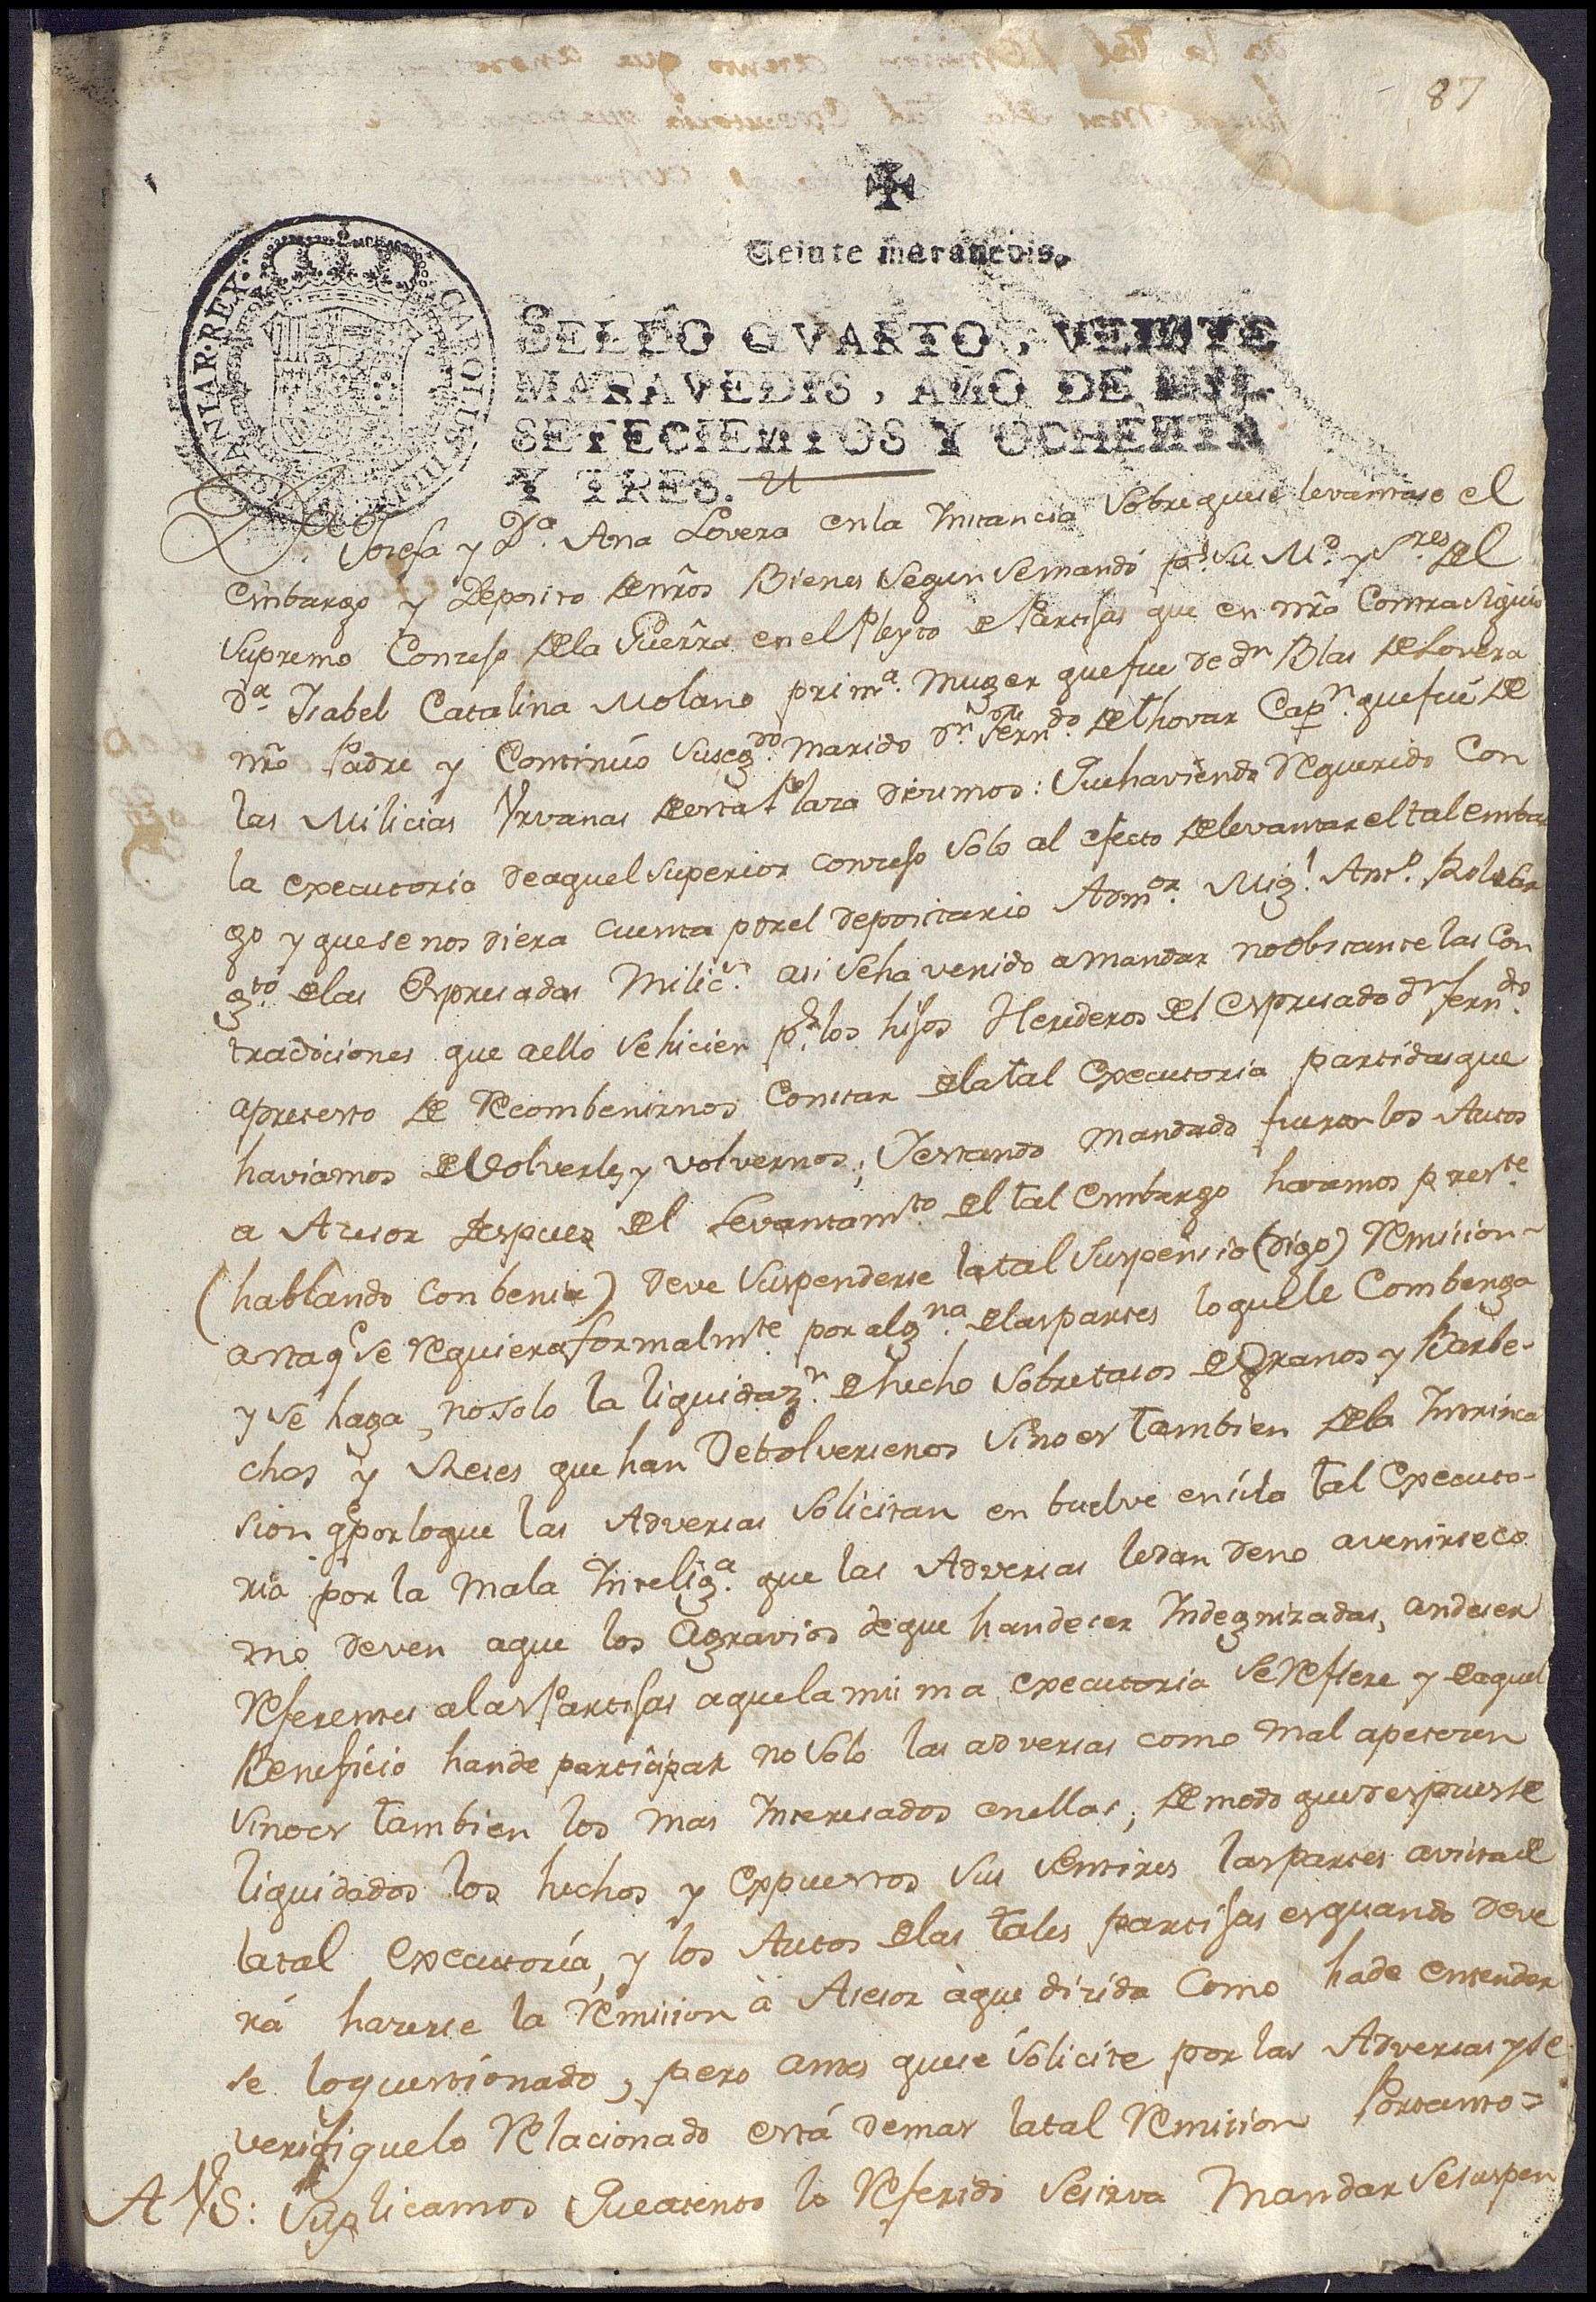 87
Veinte maravedis.
SELLO QVARTO, VEINTE
MARAVEDIS, AÑO DE MIL
SETECIENTOS Y OCHENTA
Y TRES.
CAROLUS III HISPANIAR. REX.
Da. Josefa y Da. Ana Lovera en la Instancia sobre que se levantase el
embargo y Deposito de nros Bienes segun se mandó pr. Su Md. y Sres. del
supremo Consejo de la Guerra en el Pleyto de Partijas que en nro Contra siguio
da Isabel Catalina Molano prima. muger que fue de dn Blas de Lovera
nro Padre y Continuó su segdo. marido dn. Ferndo. de thovar Capn. que fué de
las Milicias Vrvanas de esta Plaza dezimos: Que haviendo requerido Con
la executoria de aquel superior consejo solo al efecto de levantar el tal embar
go y que se nos diera cuenta por el depositario Admor. Migl. Anto.
gto. de las Expresadas Milics. asi se ha venido a mandar no obstante las Con
tradiciones que aello se hicien pr. los hijos Herederos del expresado dn ferndo.
apretesto de Recombenirnos Constar de la tal executoria partidas que
haviamos de Volverles y volvernos; Yestando mandado fueron los Autos
a Asesor despues del Levantamto. del tal embargo havamos preste.
(hablando con benia) deve suspenderse la tal suspensio (digo) Remision
asta q se requiera formalmte. por algna. de las partes lo que le Combenga
y se haga, no solo la liquidazn. de hecho sobre tasos de Granos y Barbe-
chos y Reses que han Debolversenos sino es tambien de la Intrinca
sion q por lo que las Adversas solicitan en buelve en si la tal executo-
ria por la mala Inteliga. que las Adversas le dan de no avenirse co
mo deven aque los agravios de que han de ser Indegnizadas, an de ser
Referentes a las Partijas aque la misma executoria se Refiere y de aquel
Beneficio han de participar no solo las adversas como mal apetezen
sino es tambien los mas Interesados en ellas; de modo que despues de
liquidados los hechos y expuestos sus sentires las partes avista de
la tal executoria, y los Autos de las tales partijas es quando deve
rá hazerse la Remision à Asesor àque dizida Como ha de entender
se lo questionado, pero antes que se solicite por las Adversas y se
verifique lo Relacionado está demas la tal Remision Portanto=
A VS: Suplicamos Que atento lo Referido se sirva Mandar se suspen